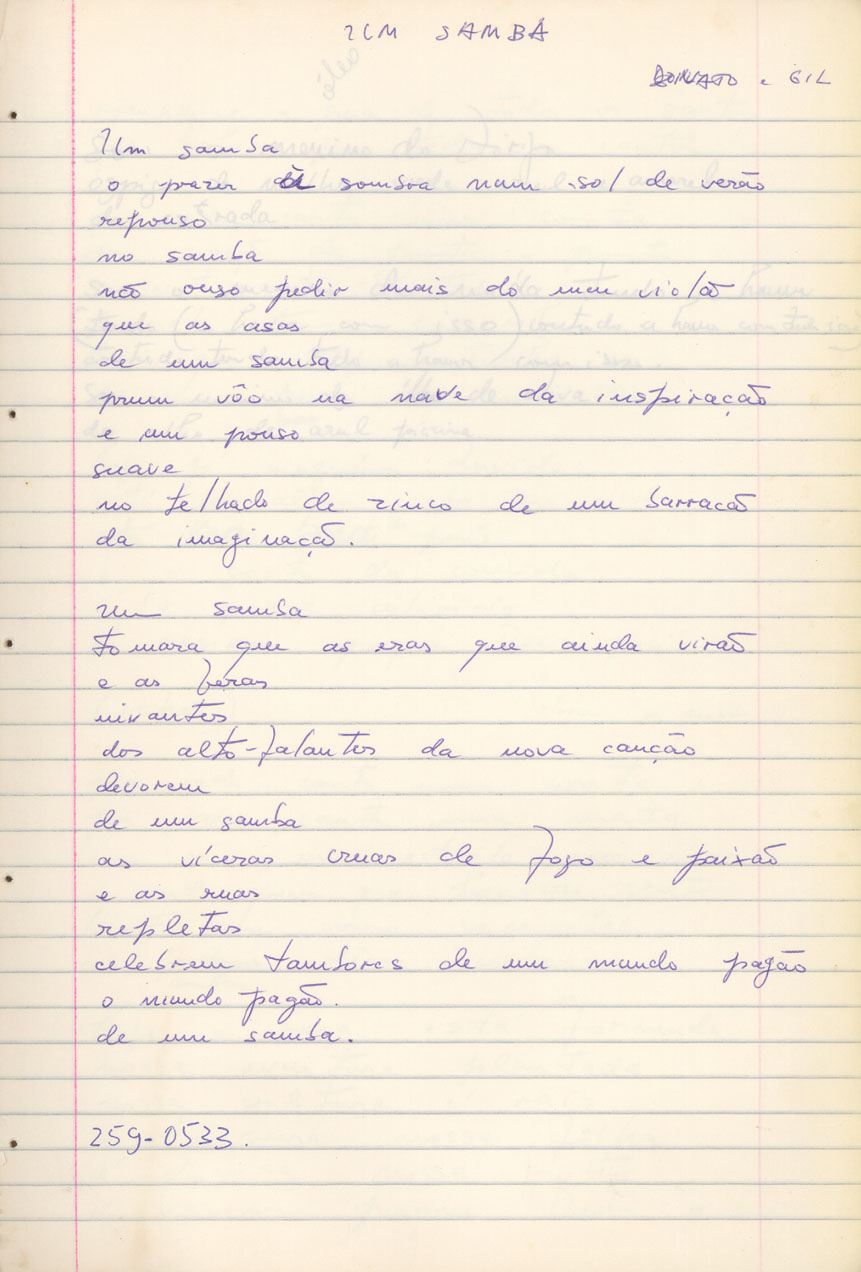 UM SAMBA
DONATO e GIL
Um samba
o prazer à sombra num sol de verão
repouso
no samba
não ouso pedir mais do meu violão
que as asas
de um samba
prum vôo na nave da inspiração
e um pouso
suave
no telhado de zinco de um barracão
da imaginação.
Um samba
tomara que as eras que ainda virão
e as feras
uivantes
dos alto-falantes da nova canção
devorem
de um samba
as víceras cruas de fogo e paixão
e as ruas
repletas
celebrem tambores de um mundo pagão
o mundo pagão.
de um samba.
259-0533.